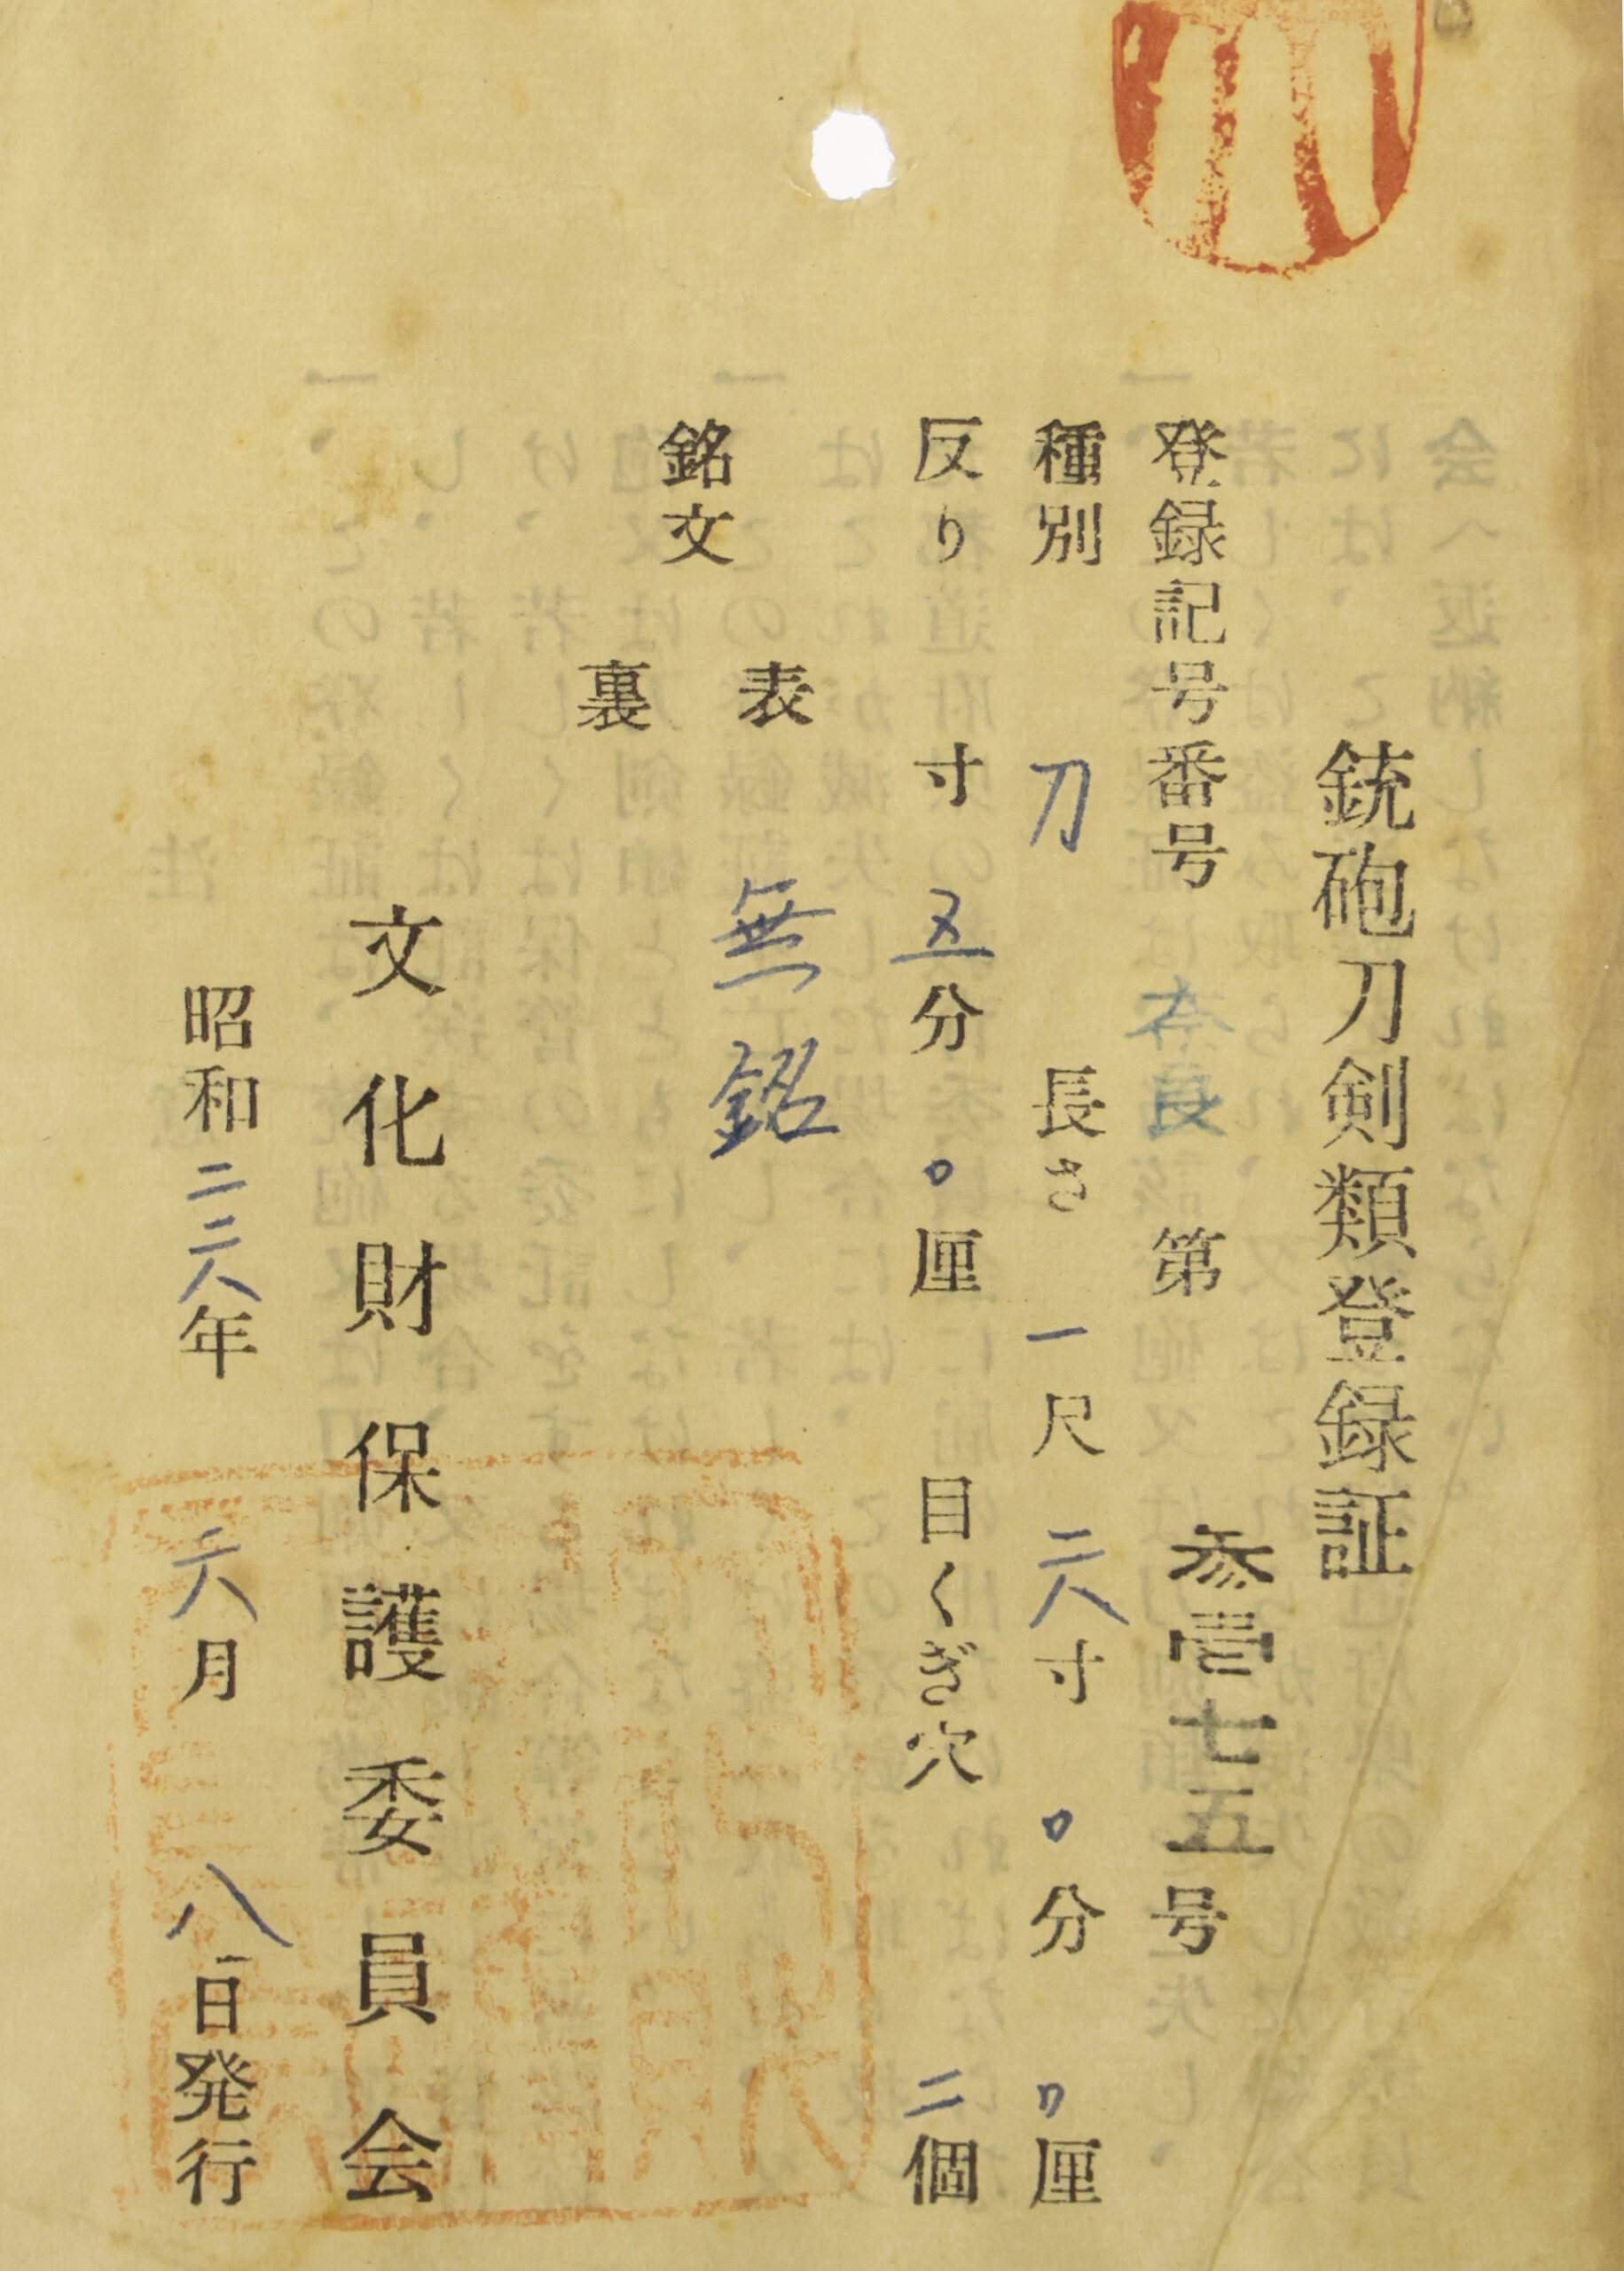 銃砲刀剣類登録証
登録記号番号 第 参壱七五号
種別 刀 長さ 一尺 六寸 〇分 〃厘
反り 寸 五分 〇厘 目くぎ穴 二個
銘文
表 無銘
裏
文化財保護委員会
昭和二六年 六月 八日発行